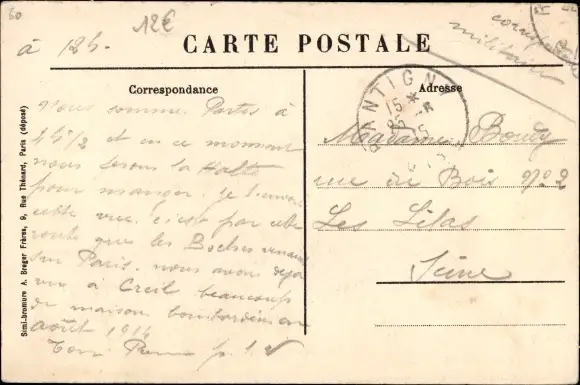 60
12€
à 12h.
correspce
militaire
CARTE POSTALE
Correspondance
Adresse
Nous somme Partis à
4h 1/2 et en ce moment
nous ferons la Halte
pour manger. je t'envoie
cette vue c'est par cette
route que les Boches venaient
sur Paris. nous avons déjà
vu à Creil beaucoup
de maison bombardées en
août 1914
Ton
PANTIGNY
15 *
Madame Bouly
rue du Bois No 2
Les Lilas
Seine
Simi-bromure A. Breger Frères, 9, Rue Thénard, Paris (déposé)